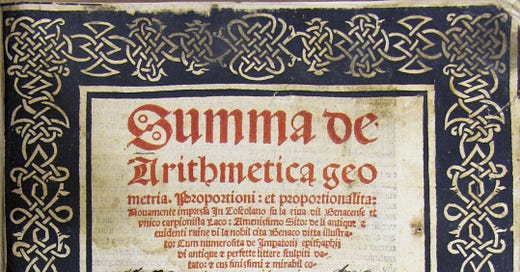 Summa de
Arithmetica geo
metria. Proportioni: et proportionalita:
Nouamente impressa In Toscolano su la riua dil Benacense et
vnico carpionista Laco: Amenissimo Sito: de li antique &
euidenti ruine di la nobil cita Benaco ditta illustra-
to: Cum numerosita de Imperatorij epithaphij
di antique & perfette littere sculpiti do-
tato: & cus finissimi & mirabil co-